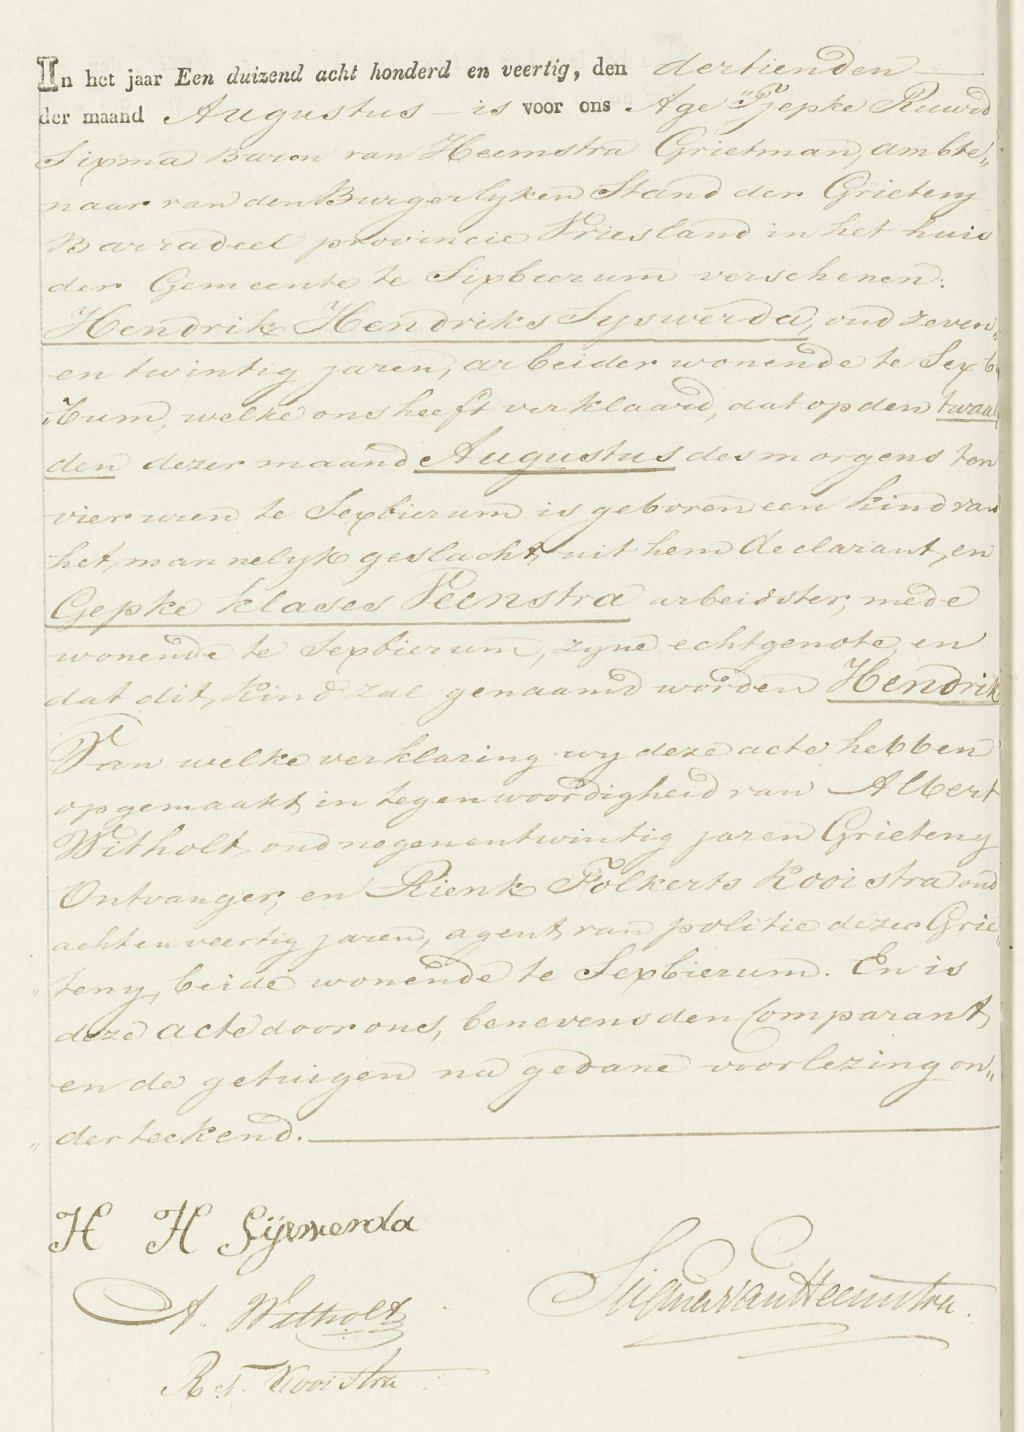 In het jaar Een duizend acht honderd en veertig, den dertienden
der maand Augustus is voor ons Age Tjepke Ruurd
Sixma Baron van Heemstra Grietman, ambte„
naar van den Burgerlyken Stand der Grieteny
Barradeel provincie Vriesland in het huis
der Gemeente te Sixbierum verschenen:
Hendrik Hendriks Syswerda, oud zeven„
en twintig jaren, arbeider wonende te Sexb
„rum, welke ons heeft verklaard, dat op den twaal
den dezer maand Augustus des morgens ten
vier uren te Sexbierum is geboren een kind van
het mannelyk geslacht, uit hem declarant, en
Gepke klases Veenstra arbeidster, mede
wonende te Sexbierum, zyne echtgenote, en
dat dit kind zal genaamd worden Hendrik
Van welke verklaring wy deze acte hebben
opgemaakt in tegenwoordigheid van Albert
Witholt oud negenentwintig jaren Grieteny
Ontvanger, en Rienk Folkerts Kooistra oud
achtenveertig jaren, agent van politie dezer Grie„
„teny, beide wonende te Sexbierum. En is
deze acte door ons, benevens den Comparant,
en de getuigen na gedane voorlezing on„
„derteekend.
H H Sÿswerda
A. Witholt
van Heemstra
R. F. Kooistra